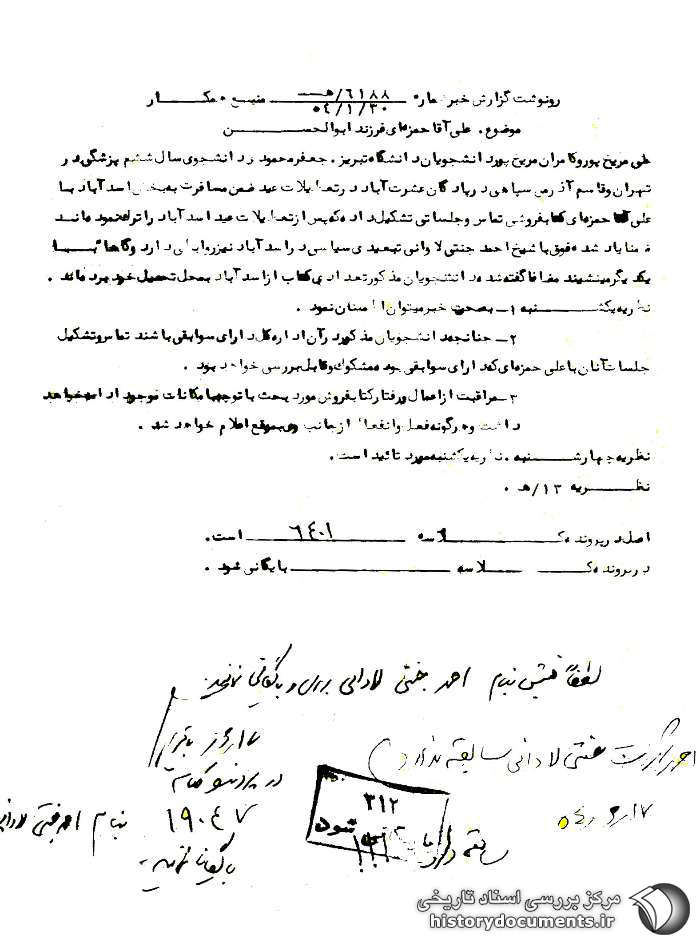 رونوشت گزارش خبر شماره ۶۱۸۸/هـ ۵۴/۱/۳۰ منبع همکار
موضوع. علی آقا حمزه‌ای فرزند ابوالحسن
علی مریخ پور و کامران مریخ پور دانشجویان دانشگاه تبریز. جعفر محمودزاد دانشجوی سال ششم پزشکی در
تهران و قاسم آذرمی سپاهی در پادگان عشرت آباد در تعطیلات عید ضمن مسافرت به بخش اسدآباد با
علی آقا حمزه‌ای کتابفروشی تماس و جلساتی تشکیل داده که پس از تعطیلات عید اسدآباد را ترک نموده‌اند
ضمنا یاد شده فوق با شیخ احمد جنتی لادانی تبعیدی سیاسی در اسدآباد نیز روابطی دارد و گاها" با
یکدیگر می‌نشینند مضافا گفته شده دانشجویان مذکور تعدادی کتاب از اسدآباد به محل تحصیل خود برده‌اند.
نظریه یکشنبه ۱ــ به صحت خبر میتوان اطمینان نمود.
۲ــ چنانچه دانشجویان مذکور در آن اداره کل دارای سوابقی باشند تماس و تشکیل
جلسات آنان با علی حمزه‌ای که دارای سوابقی بوده مشکوک و قابل بررسی خواهد بود.
۳ــ مراقبت از اعمال و رفتار کتابفروش مورد بحث با توجه به امکانات موجود ادامه خواهد
داشت و هرگونه فعل و انفعال از جانب وی بموقع اعلام خواهد شد.
نظریه چهارشنبه. نظریه یکشنبه مورد تائید است.
نظریه ۱۳/هـ.
اصل در پرونده کلاسه ۶۴۰۱ است.
در پرونده کلاسه بایگانی شود.
لطفاً فیش بنام احمد جنتی لادانی بررسی و بایگانی نمائید
احمد جنتی لادانی سابقه ندارد
در پرونده
۱۹۰۴۷ بنام احمد جنتی لادانی
بایگانی نمائید
۳۱۲
مرکز بررسی اسناد تاریخی
historydocuments.ir